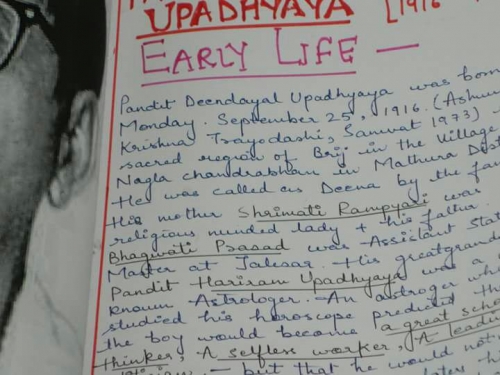 UPADHYAYA [1916
EARLY LIFE —
Pandit Deendayal Upadhyaya was born
Monday. September 25, 1916. (Ashwin
Krishna Trayodashi, Samvat 1973) -
sacred region of Brij in the Village
Nagla chandrabhan in Mathura Dist
He was called as Deena by the fa
His mother Shrimati Rampyari was
religious minded lady + his father.
Bhagwati Prasad was Assistant Sta
Master at Jalesar. His greatgrand
Pandit Hariram Upadhyaya was a
known Astrologer. An astroger wh
studied his horoscope predict th
the boy would become a great scho
thinker, A selfless worker, A leadi
— but that he would not